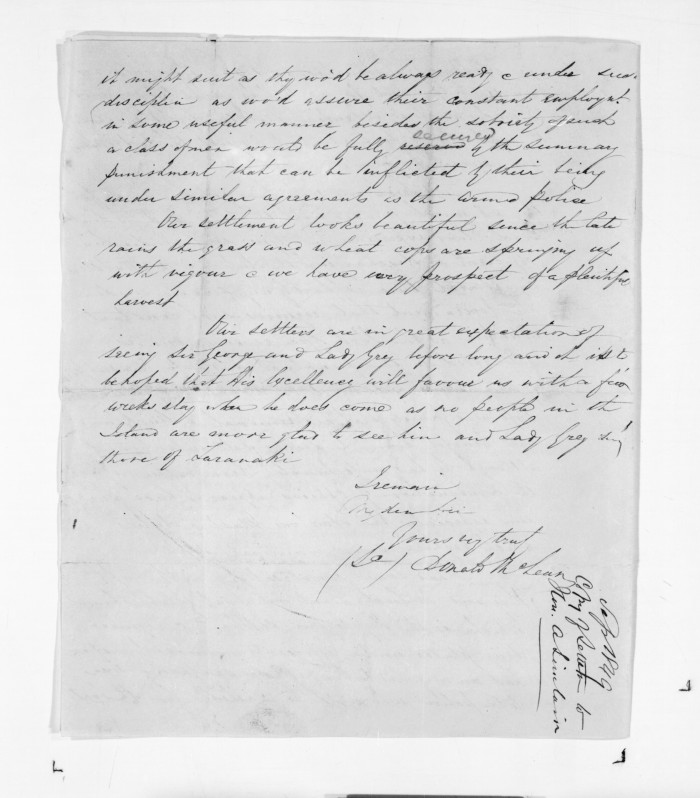 it might suit as they wo'd be always ready & under such
disciplin as wo'd assure their constant employmt.
in some useful manner besides the sobriety of such
a class of men would be fully secured by the summary
punishment that can be inflicted by their being
under similar agreements as the armd police
Our settlement looks beautiful since the late
rains the grass and wheat cops are springing up
with vigour & we have every prospect of a plentiful
harvest
Our settlers are in great expectation of
seeing Sir George and Lady Grey before long and it is to
be hoped that His Excellency will favour us with a few
weeks stay when he does come as no people in the
Island are more glad to see him and Lady Grey than
those of Taranaki
I remain
My dear Sir
Yours very truly
Donald McLean
1849
Copy of Letter to
Hon. A Sinclair